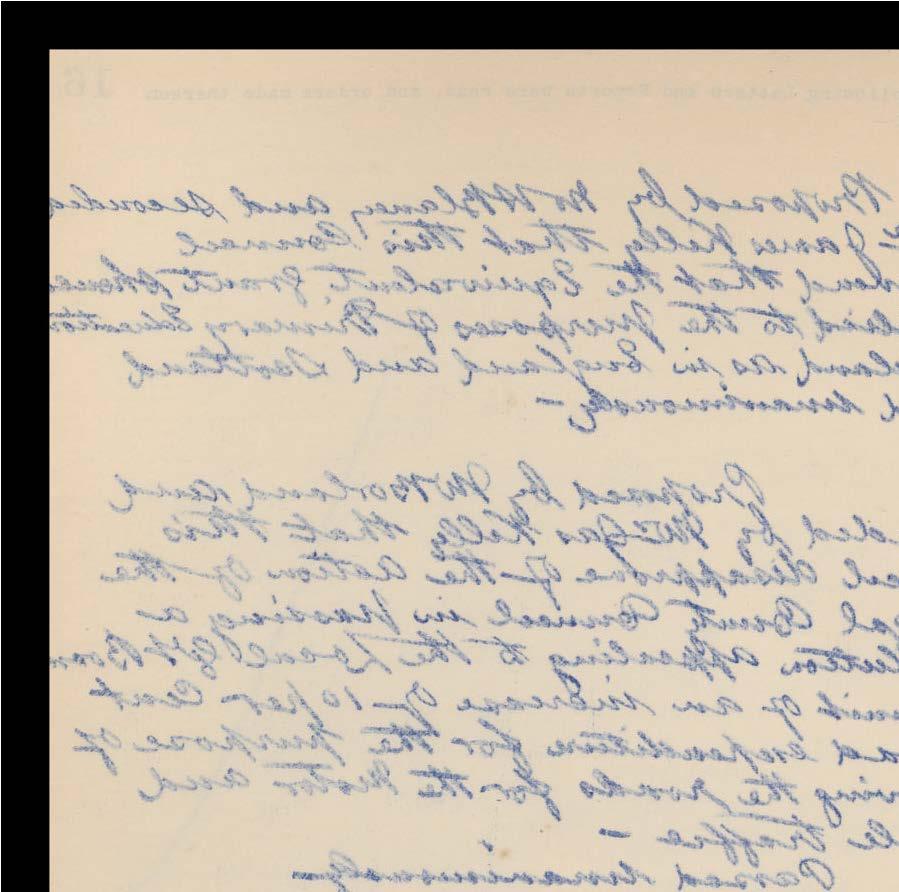 ollowing Letters and Reports were read, and orders made thereon 16
Proposed by Wm Blaney and seconded
James Kelly that this Council
that the Equivalent Grant
to the purposes of Primary Education
as in England and Scotland
unanimously –
Proposed by Wm Borland and
ded by Mr Jas Kelly that this
cil disapprove of the action of the
County Council in passing a
appealing to the Local Govt Boar
of an increase of 10 per Cent
ad expenditure for the purpose of
the roads for the Motor and
traffic –
Passed Unanimously –